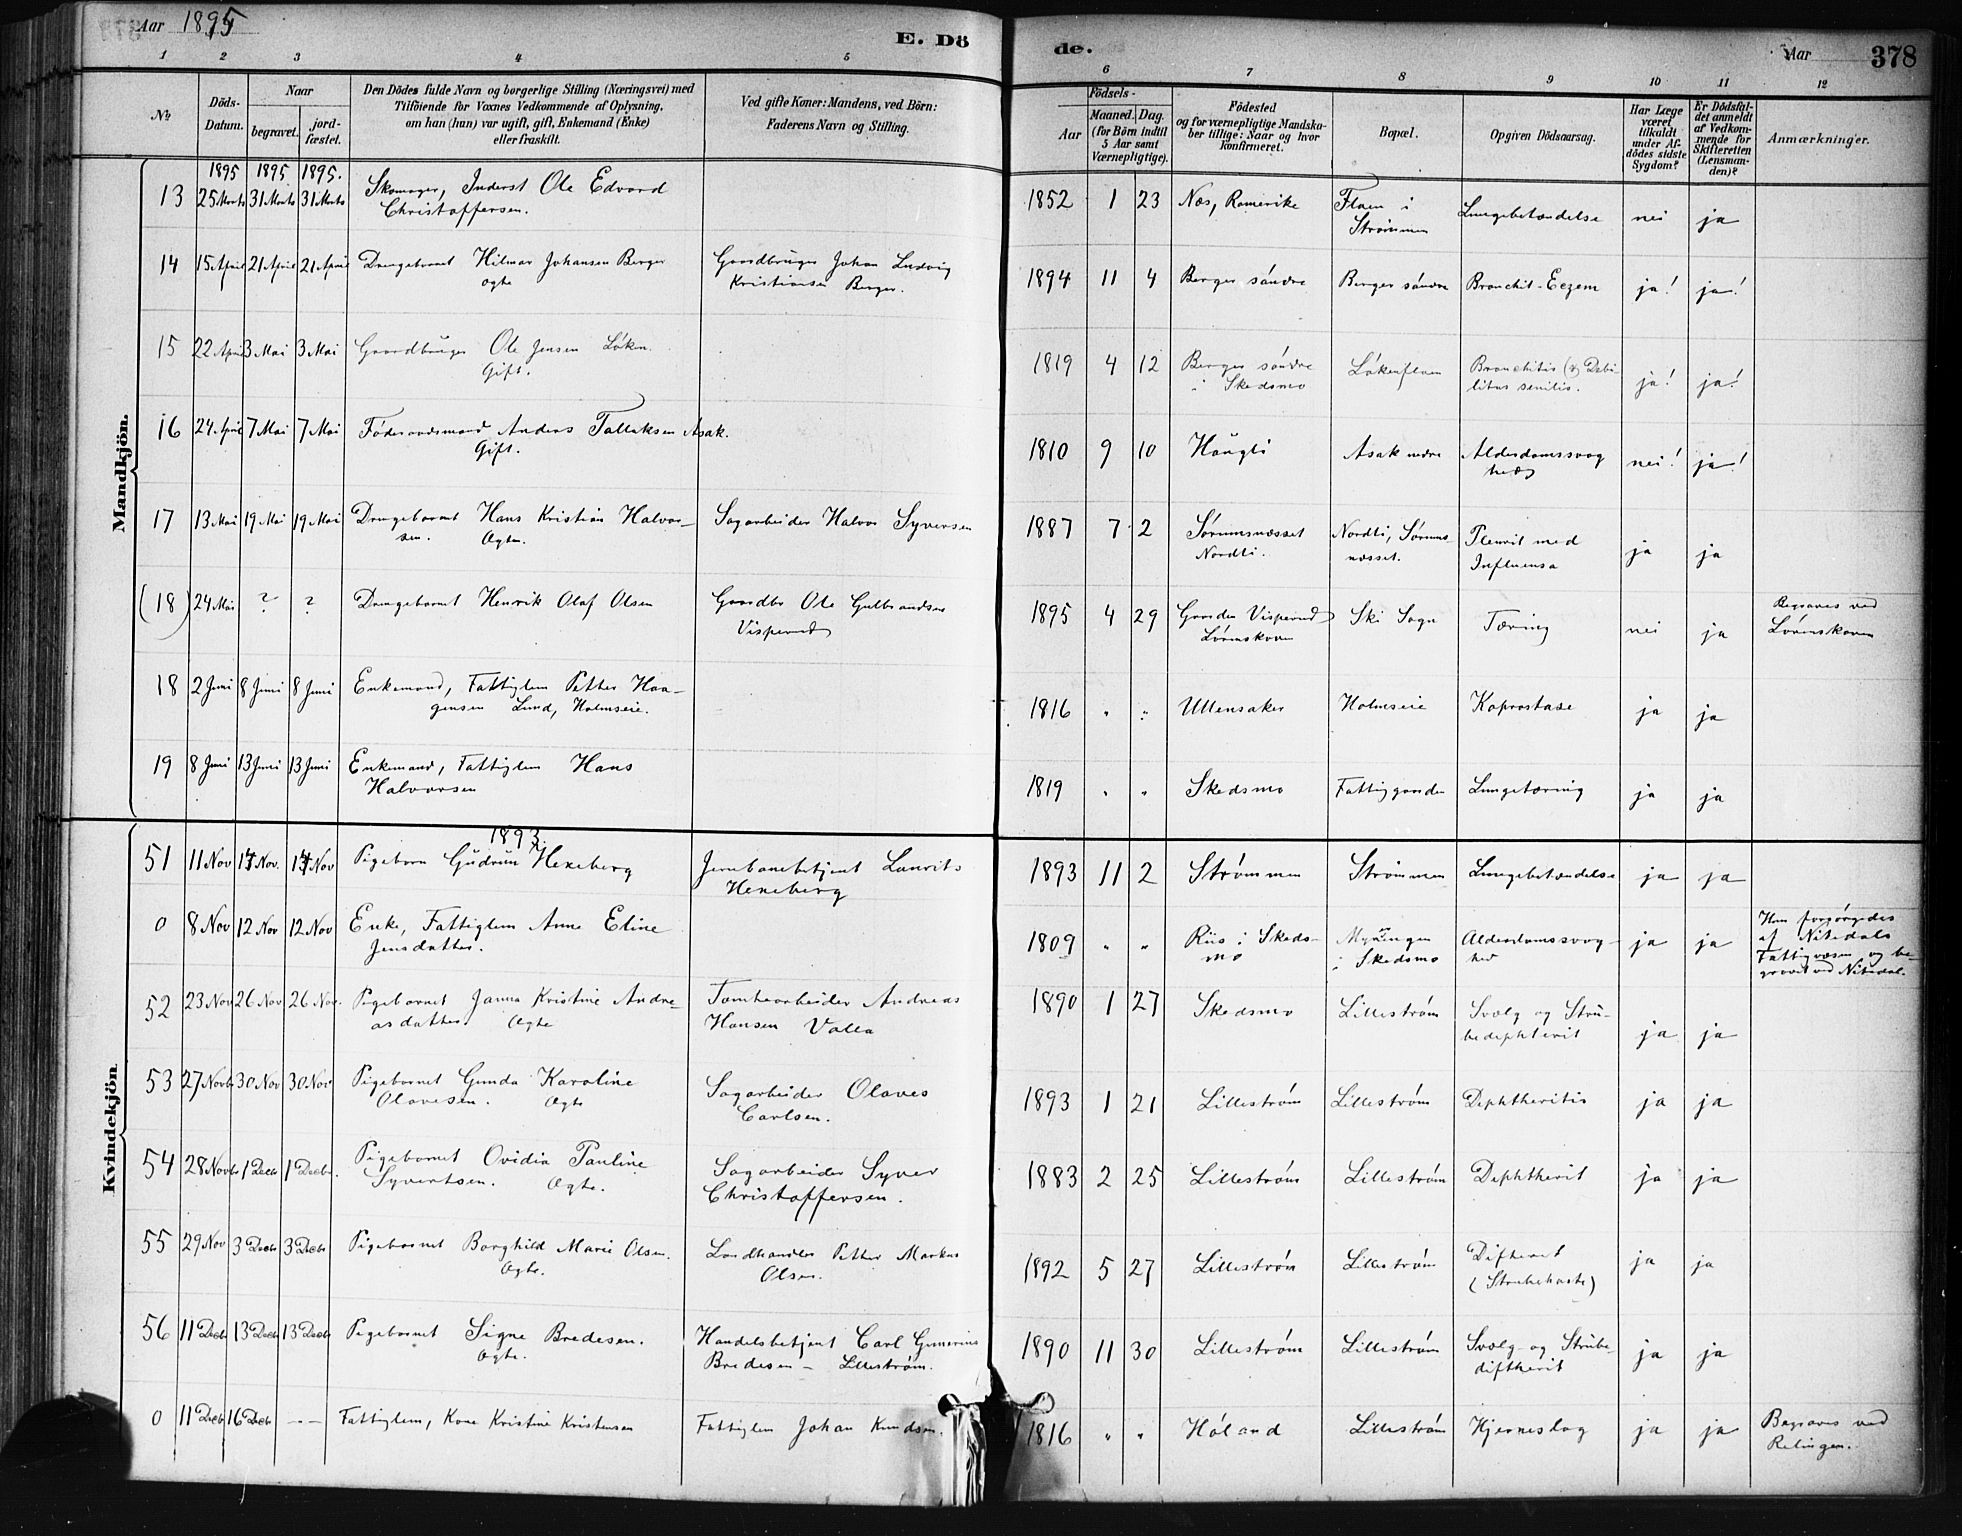 Aar 1895
E. Dö
de.
Aar
378
1 2 3 4 5
6 7 8 9 10 11 12
№
Döds-Datum.
Naar
begravet.
jord-fæstet.
Den Dödes fulde Navn og borgerlige Stilling (Næringsvei) med
Tilföiende for Voxnes Vedkommende af Oplysning,
om han (hun) var ugift, gift, Enkemand (Enke)
eller fraskilt.
Ved gifte Koner: Mandens, ved Börn:
Faderens Navn og Stilling.
Födsels-
Aar
Maaned. Dag.
(for Börn indtil
5 Aar samt
Værnepligtige).
Födested
og for værnepligtige Mandska-
ber tillige: Naar og hvor
konfirmeret.
Bopæl.
Opgiven Dödsaarsag.
Har Læge
været
tilkaldt
under Af-
dödes sidste
Sygdom?
Er Dödsfal-
det anmeldt
af Vedkom-
mende for
Skifteretten
(Lensman-
den)?
Anmærkninger.
Mandkjön.
1895 1895 1895.
13 25 Marts 31 Marts 31 Marts Skomager, Inderst Ole Edvard 1852 1 23 Næs, Romerike Flaen i Lungebetændelse nei ja
Christoffersen. Strømmen
14 15 April 21 April 21 April Drengebarnet Hilmar Johansen Berger Gaardbruger Johan Ludvig 1894 11 4 Berger søndre Berger søndre Bronchit-Eczem ja! ja!
ægte Kristiansen Berger.
15 22 April 3 Mai 3 Mai Gaardbruger Ole Jensen Løken. 1819 4 12 Berger søndre Løkenflaen Bronchitis (?) Debi-
Gift. i Skedsmo litas senilis. ja! ja!
16 24 April 7 Mai 7 Mai Føderaadsmand Anders Tollaksen Asak. 1810 9 10 Haugli Asak nedre Alderdomssvag
Gift. hed nei! ja!
17 13 Mai 19 Mai 19 Mai Drengebarnet Hans Kristian Halvor- Sagarbeider Halvor Syversen 1887 7 2 Sørumsnæsset Nordli, Sørums- Pleurit med
sen. Ægte. Nordli. næsset. Influensa ja ja
(18) 24 Mai ? ? Drengebarnet Henrik Olaf Olsen Gaardbr Ole Gulbrandsen 1895 4 29 Gaarden Visperud Ski Sogn Tæring nei ja Begraves ved
Visperud Lørenskoven Lørenskoven
18 2 Juni 8 Juni 8 Juni Enkemand, Fattiglem Petter Haa- 1816 " " Ullensaker Holmseie Koprostase ja ja
gensen Lund, Holmseie.
19 8 Juni 13 Juni 13 Juni Enkemand, Fattiglem Hans 1819 " " Skedsmo Fattiggaarden Lungetæring ja ja
Halvorsen
Kvindekjön
1893
51 11 Nov 14 Nov. 14 Nov Pigebarn Gudrun Hexeberg Jernbanebetjent Laurits 1893 11 2 Strømmen Strømmen Lungebetændelse ja ja
Hexeberg
0 8 Nov 12 Nov 12 Nov Enke, Fattiglem Anne Eline 1809 " " Riis i Skeds- Alderdomssvag- ja ja Hun forsørgedes
Jensdatter. mo i Skedsmo hed af Nitedals
Fattigvæsen og be-
gravet ved Nitedal.
52 23 Nov 26 Nov 26 Nov. Pigebarnet Janna Kristine Andre- Tomtearbeider Andreas 1890 1 27 Skedsmo Lillestrøm Svælg og Stru-
asdatter. Ægte Hansen Valla bediphterit ja ja
53 27 Novbr 30 Nov 30 Nov Pigebarnet Gunda Karoline Sagarbeider Olaves 1893 1 21 Lillestrøm Lillestrøm Diphtheritis ja ja
Olavesen. Ægte Carlsen.
54 28 Novbr 1 Decbr 1 Decbr. Pigebarnet Ovidia Pauline Sagarbeider Syver 1883 2 25 Lillestrøm Lillestrøm Diphtherit ja ja
Syvertsen. Ægte. Christoffersen.
55 29 Nov 3 Decbr 3 Decbr Pigebarnet Borghild Marie Olsen. Landhandler Petter Markus 1892 5 27 Lillestrøm Lillestrøm Difterit ja ja
Ægte. Olsen. (Strubehoste)
56 11 Decbr 13 Decbr 13 Decbr Pigebarnet Signe Bredesen. Handelsbetjent Carl Gunerius 1890 11 30 Lillestrøm Lillestrøm Svælg- og Strube-
Ægte. Bredesen - Lillestrøm. diftherit ja ja
0 11 Decbr 16 Decbr - - Fattiglem, Kone Kristine Kristensen Fattiglem Johan Knudsen. 1816 " " Høland Lillestrøm Hjerneslag ja ja Begraves ved
Relingen.